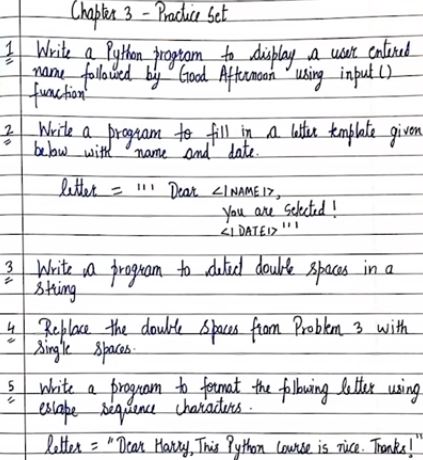 Chapter 3 - Practice Set
1 Write a Python program to display a user entered
name followed by Good Afternoon using input()
function
2 Write a program to fill in a letter template given
below with name and date.
letter = ''' Dear <|NAME|>,
You are selected!
<|DATE|> '''
3 Write a program to detect double spaces in a
string
4 Replace the double spaces from Problem 3 with
single spaces.
5 Write a program to format the following letter using
escape sequence characters.
letter = "Dear Harry, This Python course is nice. Thanks!"